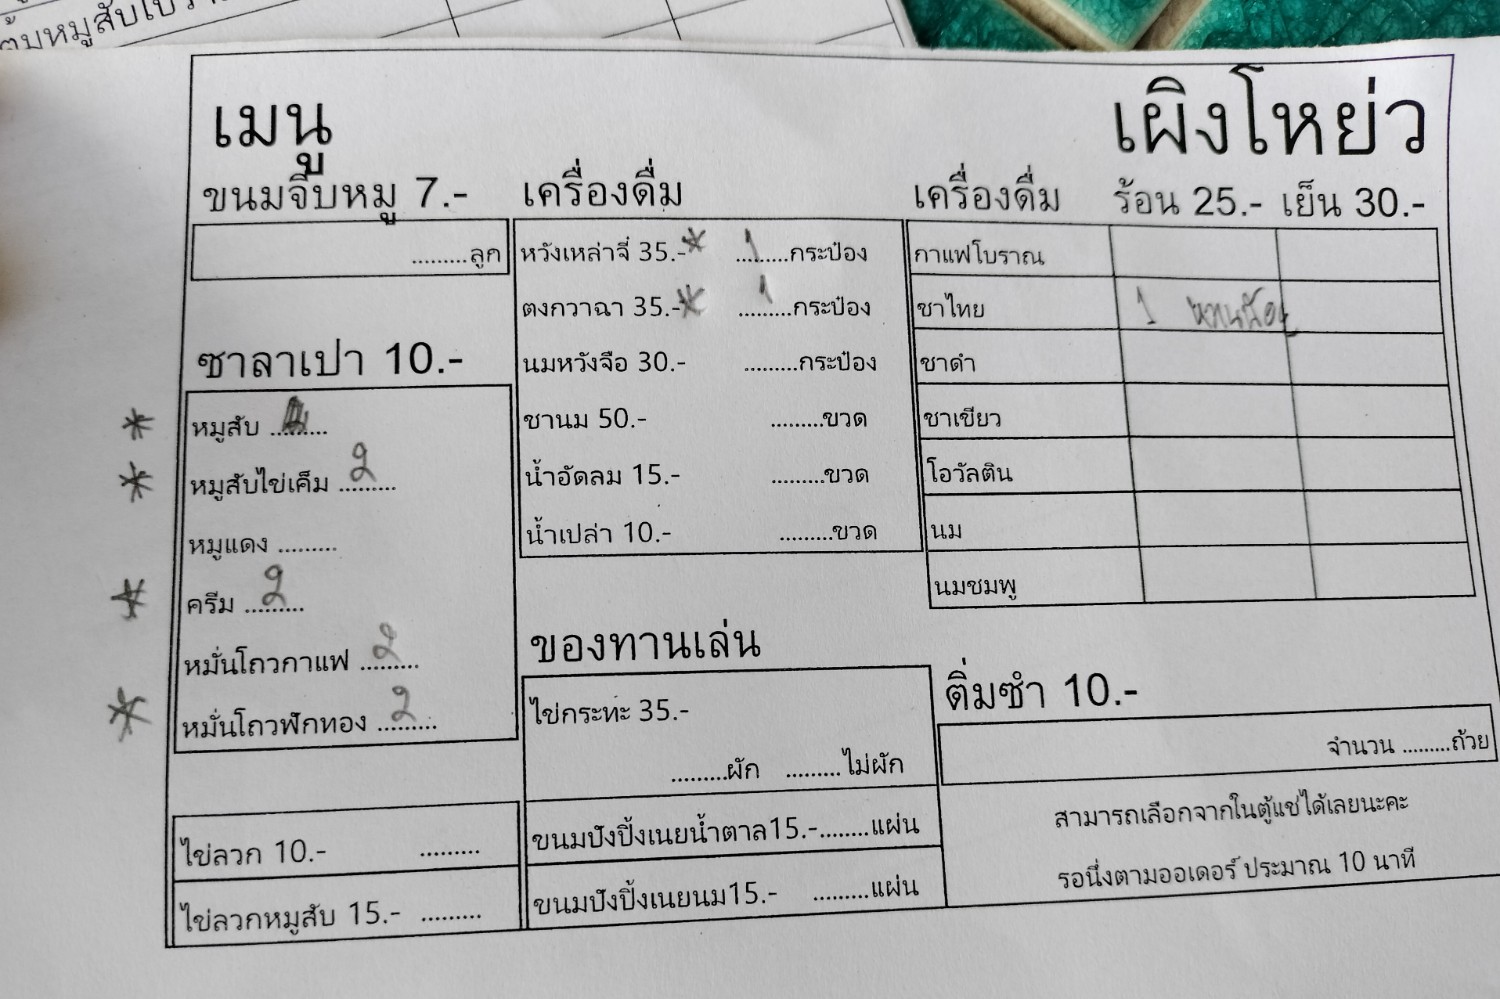 ต้มหมูสับใบ
เมนู
เผิงโหย่ว
ขนมจีบหมู 7.-
.........ลูก
ซาลาเปา 10.-
* หมูสับ .........
* หมูสับไข่เค็ม ......... 2
หมูแดง .........
* ครีม ......... 2
หมั่นโถวกาแฟ ......... 2
* หมั่นโถวฟักทอง ......... 2
ไข่ลวก 10.- .........
ไข่ลวกหมูสับ 15.- .........
เครื่องดื่ม
หวังเหล่าจี่ 35.-* 1 .........กระป๋อง
ตงกวาฉา 35.-* 1 .........กระป๋อง
นมหวังจือ 30.- .........กระป๋อง
ชานม 50.- .........ขวด
น้ำอัดลม 15.- .........ขวด
น้ำเปล่า 10.- .........ขวด
ของทานเล่น
ไข่กระทะ 35.-
.........ผัก .........ไม่ผัก
ขนมปังปิ้งเนยน้ำตาล15.-.........แผ่น
ขนมปังปิ้งเนยนม15.- .........แผ่น
เครื่องดื่ม ร้อน 25.- เย็น 30.-
กาแฟโบราณ
ชาไทย 1 หวานน้อย
ชาดำ
ชาเขียว
โอวัลติน
นม
นมชมพู
ติ่มซำ 10.-
จำนวน .........ถ้วย
สามารถเลือกจากในตู้แช่ได้เลยนะคะ
รอนึ่งตามออเดอร์ ประมาณ 10 นาที